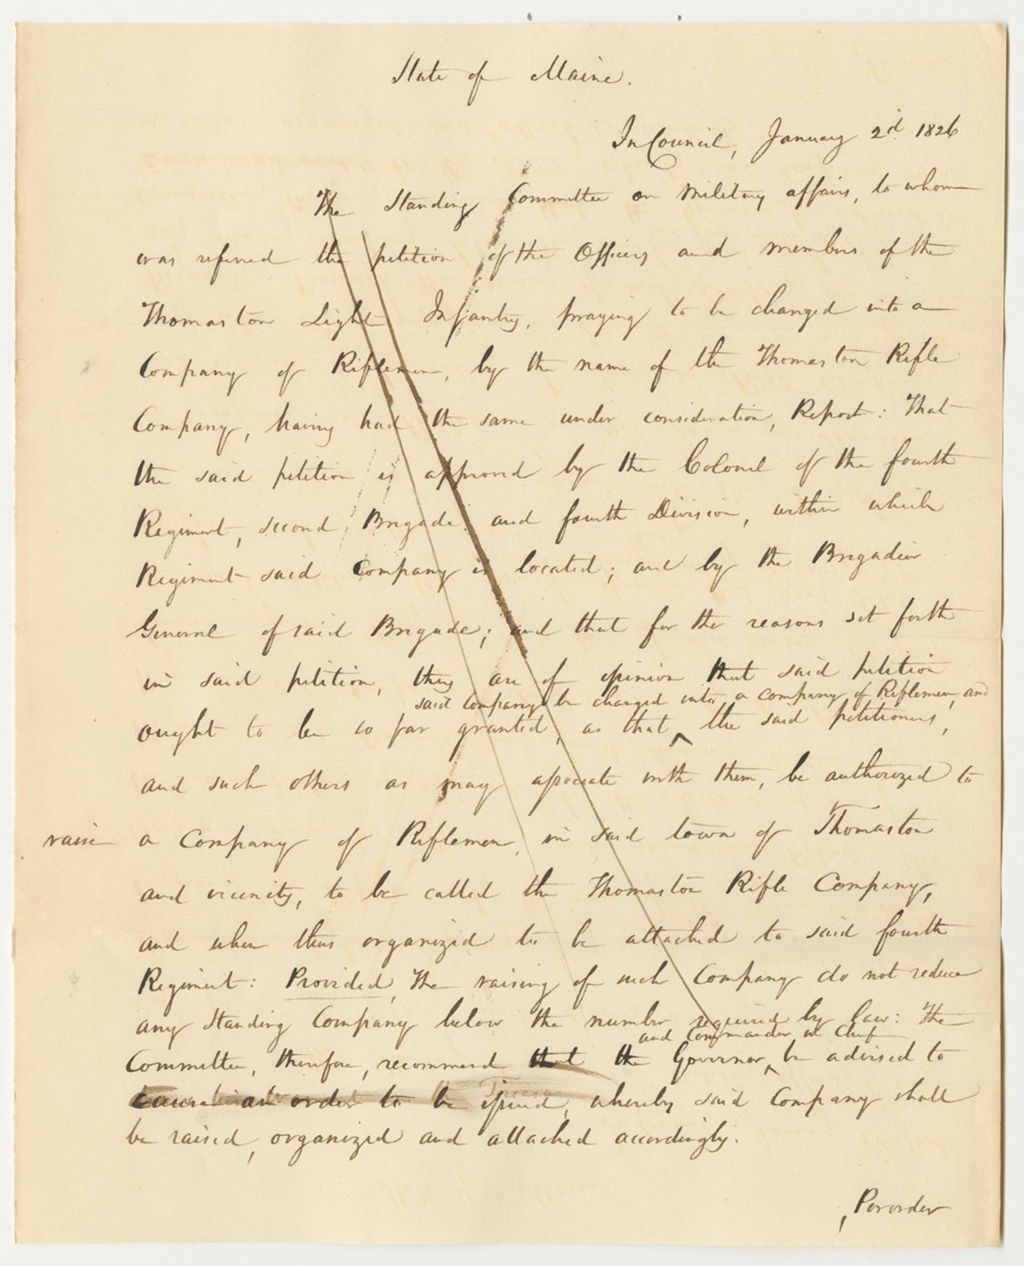 State of Maine.
In Council, January 2d 1826
The Standing Committee on Military affairs, to whom
was referred the petition of the Officers and members of the
Thomaston Light Infantry, praying to be changed into a
Company of Riflemen, by the name of the Thomaston Rifle
Company, having had the same under consideration, Report: That
the said petition is approved by the Colonel of the fourth
Regiment, second Brigade and fourth Division, within which
Regiment said Company is located; and by the Brigadier
General of said Brigade; and that for the reasons set forth
in said petition, they are of opinion that said petition
said company be changed into a company of Riflemen, and
ought to be so far granted, as that ‸ the said petitioners,
and such others as may associate with them, be authorized to
raise a Company of Riflemen, in said town of Thomaston
and vicinity, to be called the Thomaston Rifle Company,
and when thus organized to be attached to said fourth
Regiment: Provided, the raising of such Company do not reduce
any standing Company below the number required by law: The
and Commander in Chief
Committee, therefore, recommend that the Governor ‸ be advised to
cause an order to be issued, whereby said Company shall
be raised, organized and attached accordingly.
Per order